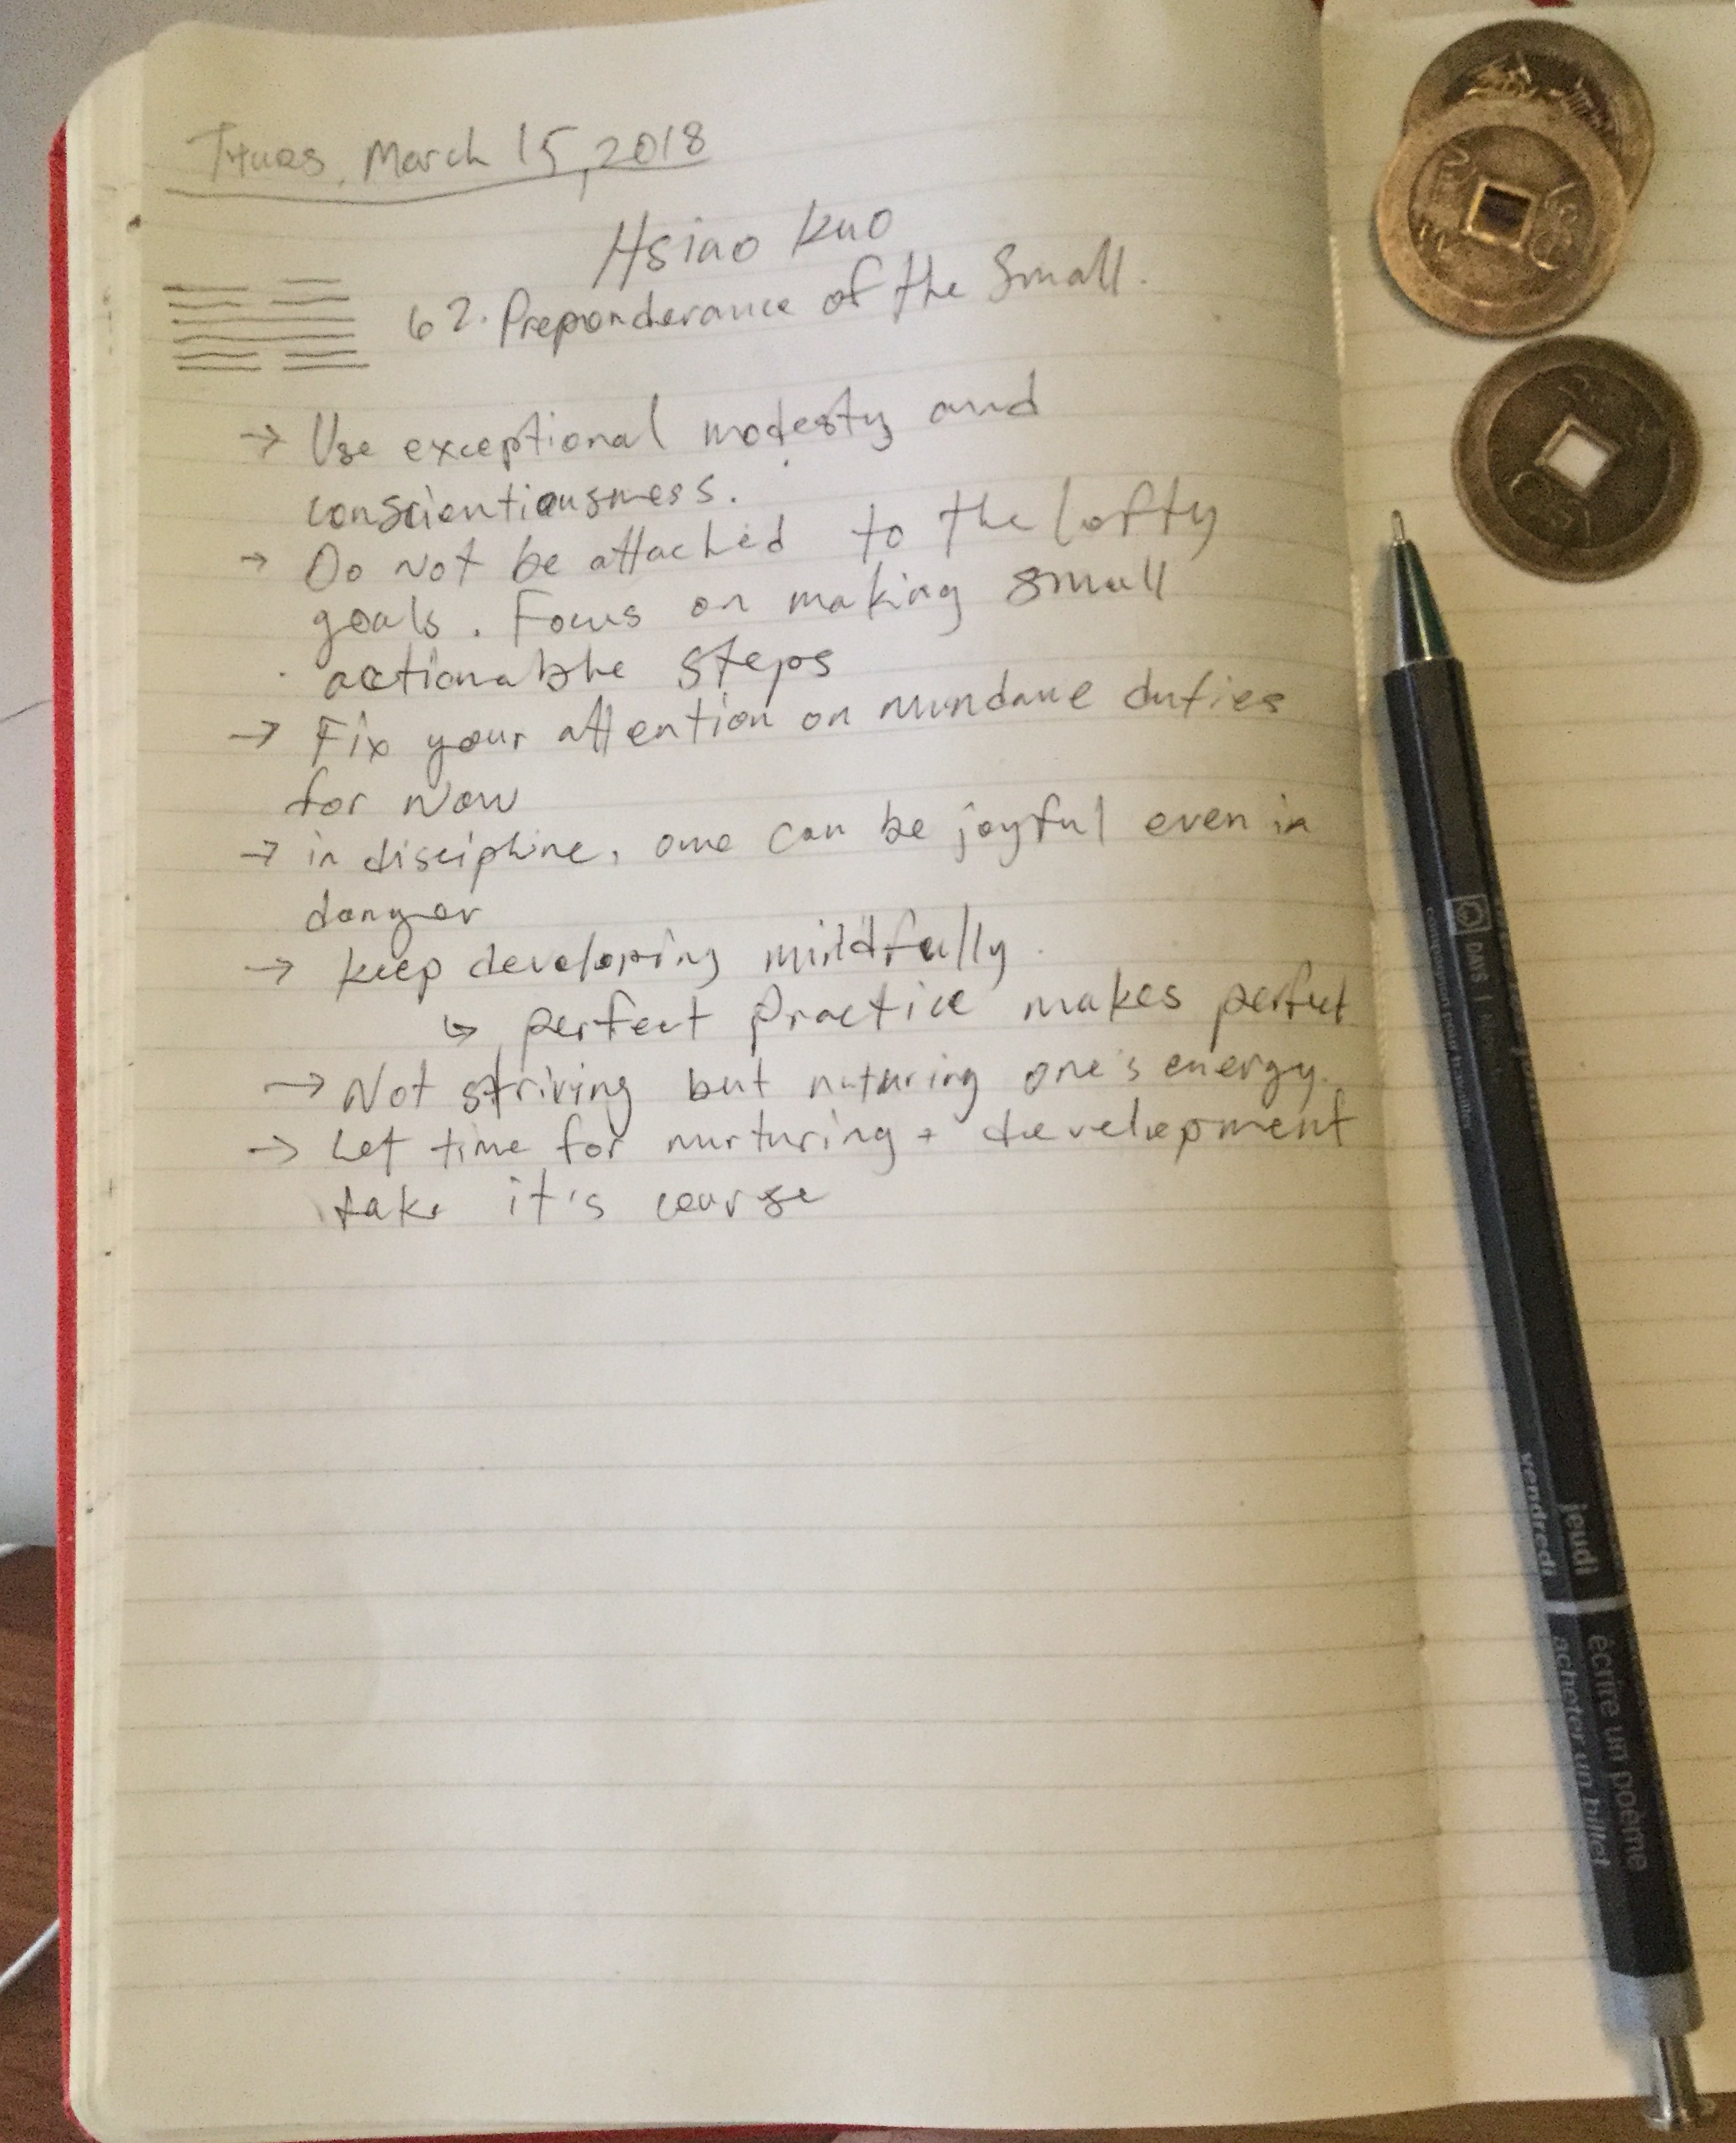 Thues, March 15, 2018
Hsiao Kuo
62. Preponderance of the Small.
→ Use exceptional modesty and
conscientiousness.
→ Do Not be attached to the lofty
goals. Focus on making small
actionable steps
→ Fix your attention on mundane duties
for Now
→ in discipline, one can be joyful even in
danger
→ keep developing mildfully.
↳ perfect practice makes perfect
→ Not striving but nuturing one's energy.
→ Let time for nurturing + development
take it's course
DAYS
jeudi écrire un poème
vendredi acheter un billet